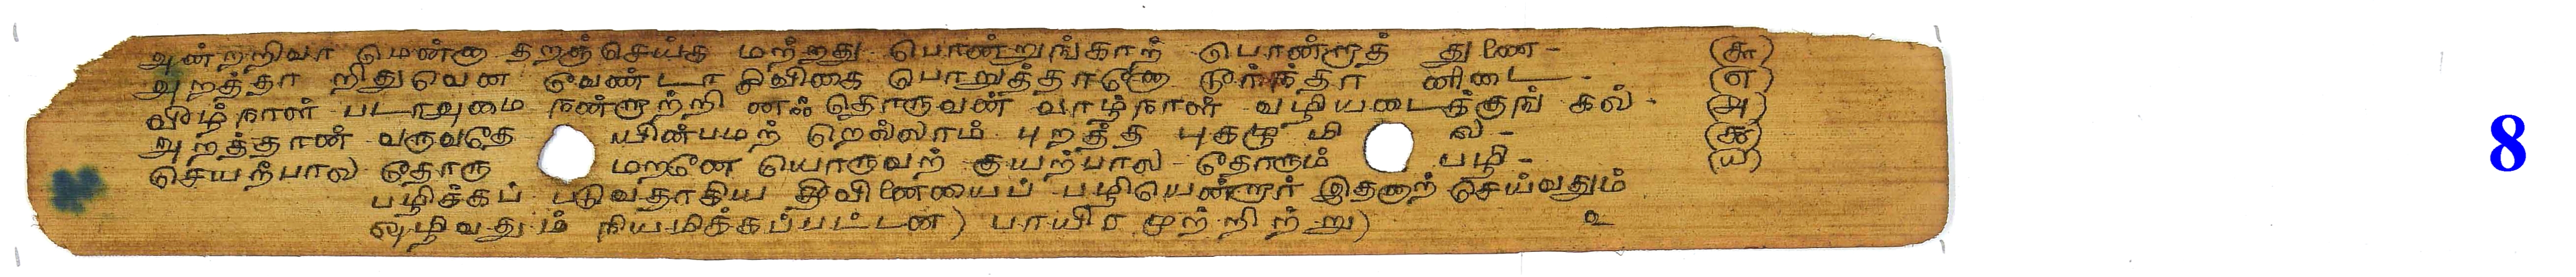 அன்றறிவா மென்னா தறஞ்செய்க மற்றது பொன்றுங்காற் பொன்றாத் துணை - (௬)
அறத்தா றிதுவென வேண்டா சிவிகை பொறுத்தானோ டூர்ந்தா னிடை - (௭)
வீழ்நாள் படாஅமை நன்றாற்றி னஃதொருவன் வாழ்நாள் வழியடைக்குங் கல் - (௮)
அறத்தான் வருவதே யின்பமற் றெல்லாம் புறத்த புகழு மில - (௯)
செயற்பால தோரு மறனே யொருவற் குயற்பால தோரும் பழி - (௰)
பழிக்கப் படுவதாகிய தீவினையைப் பழியென்றார் இதனாற் செய்வதும்
ஒழிவதும் நியமிக்கப்பட்டன) பாயிர முற்றிற்று) உ
8